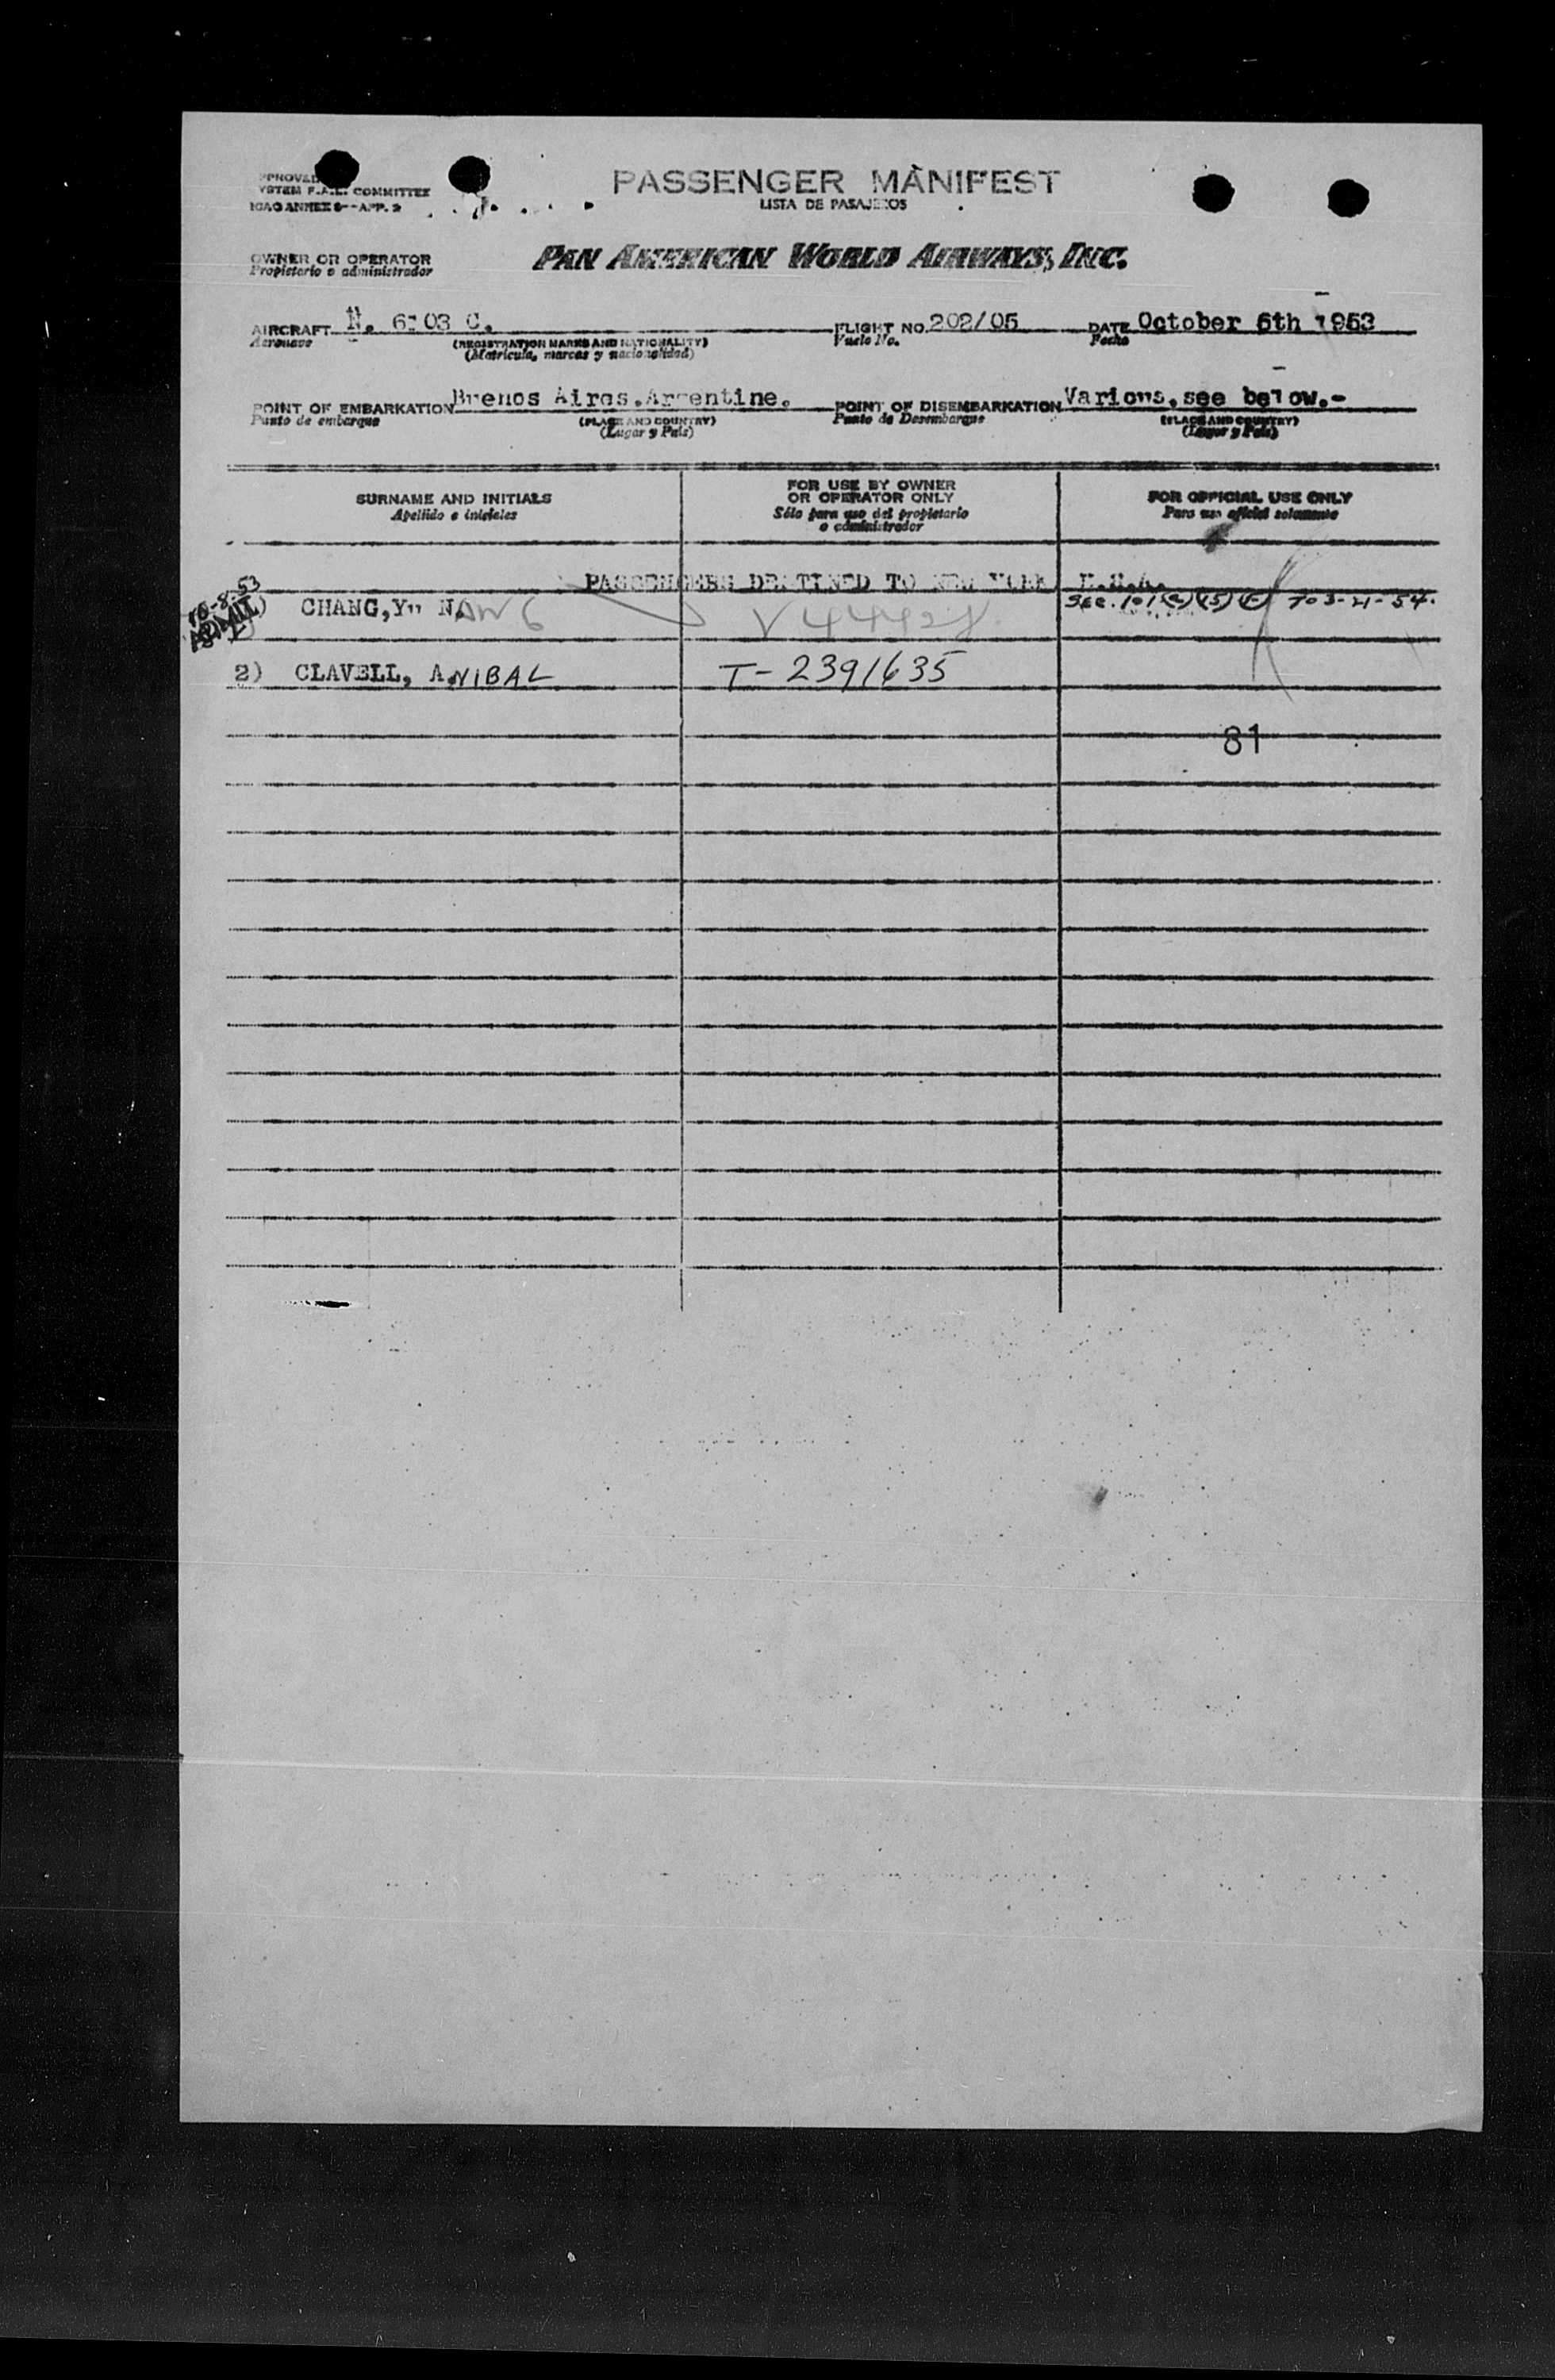 SYSTEM F.A.L. COMMITTEE
ICAO ANNEX 9--APP. 2
PASSENGER MANIFEST
LISTA DE PASAJEROS
OWNER OR OPERATOR
Propietario o administrador
PAN AMERICAN WORLD AIRWAYS, INC.
AIRCRAFT N. 03 C.
Aeronave
(REGISTRATION MARKS AND NATIONALITY)
(Matricula, marcas y nacionalidad)
FLIGHT NO. 202/05
Vuelo No.
DATE October 6th 1953
Fecha
POINT OF EMBARKATION Buenos Aires. Argentine.
Punto de embarque
(PLACE AND COUNTRY)
(Lugar y Pais)
POINT OF DISEMBARKATION Various, see below.-
Punto de Desembarque
(PLACE AND COUNTRY)
(Lugar y Pais)
SURNAME AND INITIALS
Apellido e iniciales
FOR USE BY OWNER
OR OPERATOR ONLY
Sólo para uso del propietario
o administrador
FOR OFFICIAL USE ONLY
Para uso oficial solamente
PASSENGERS DESTINED TO NEW YORK, U.S.A.
10-8-53
ADMIT
CHANG, Yu NANG
Sec. 101(a)(15)(F) TO 3-21-54.
2) CLAVELL, ANIBAL T-2391635
81